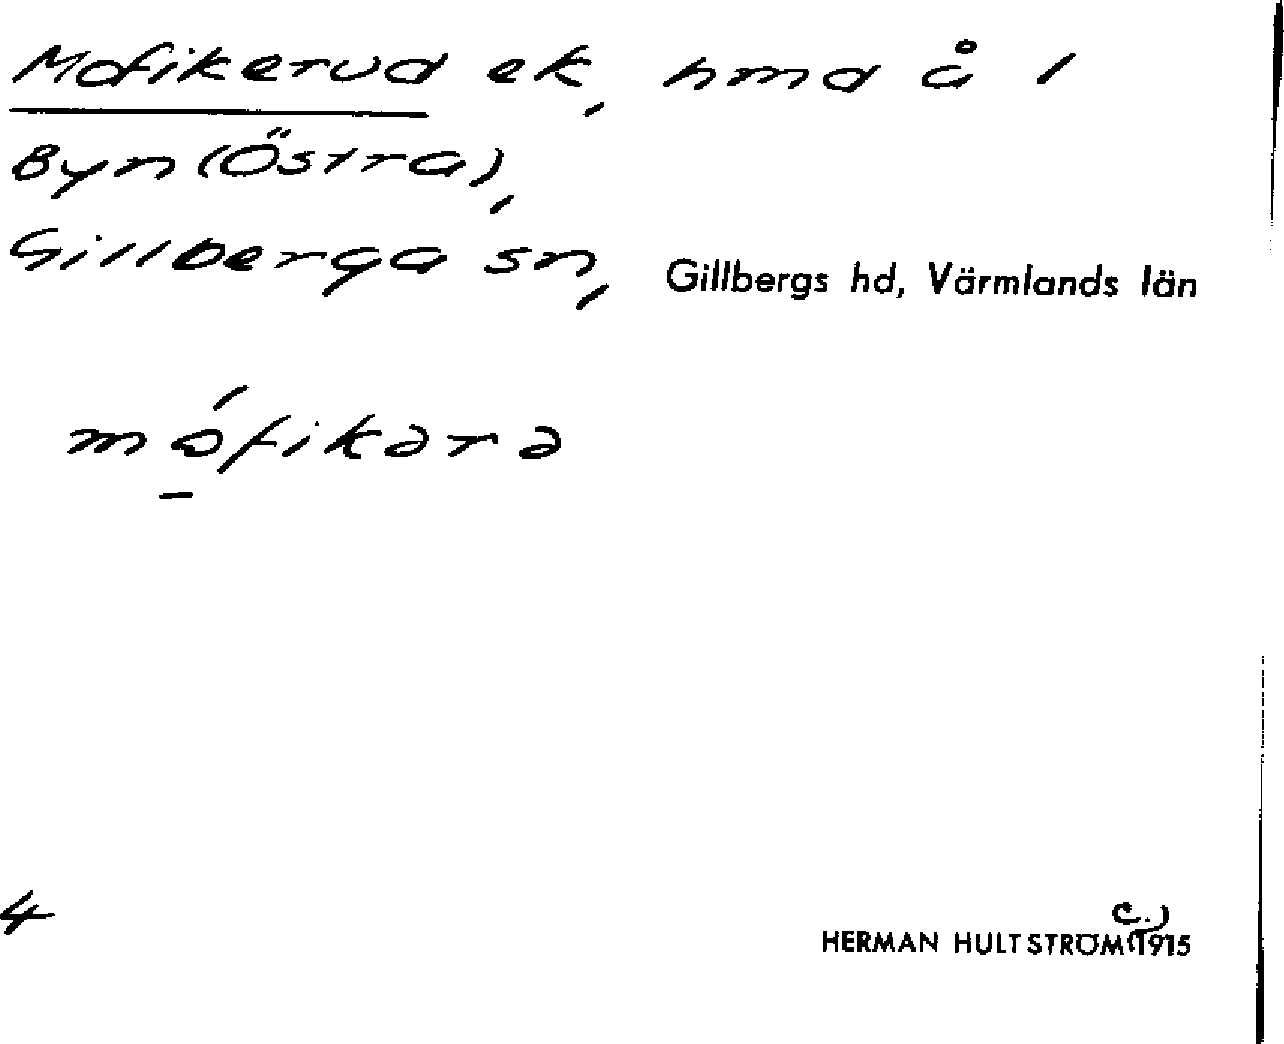 Mofikerud ek, hmd å 1
Byn (Östra),
Gillberga sn, Gillbergs hd, Värmlands län
mófikərə
4
HERMAN HULTSTRÖM (C.) 1915